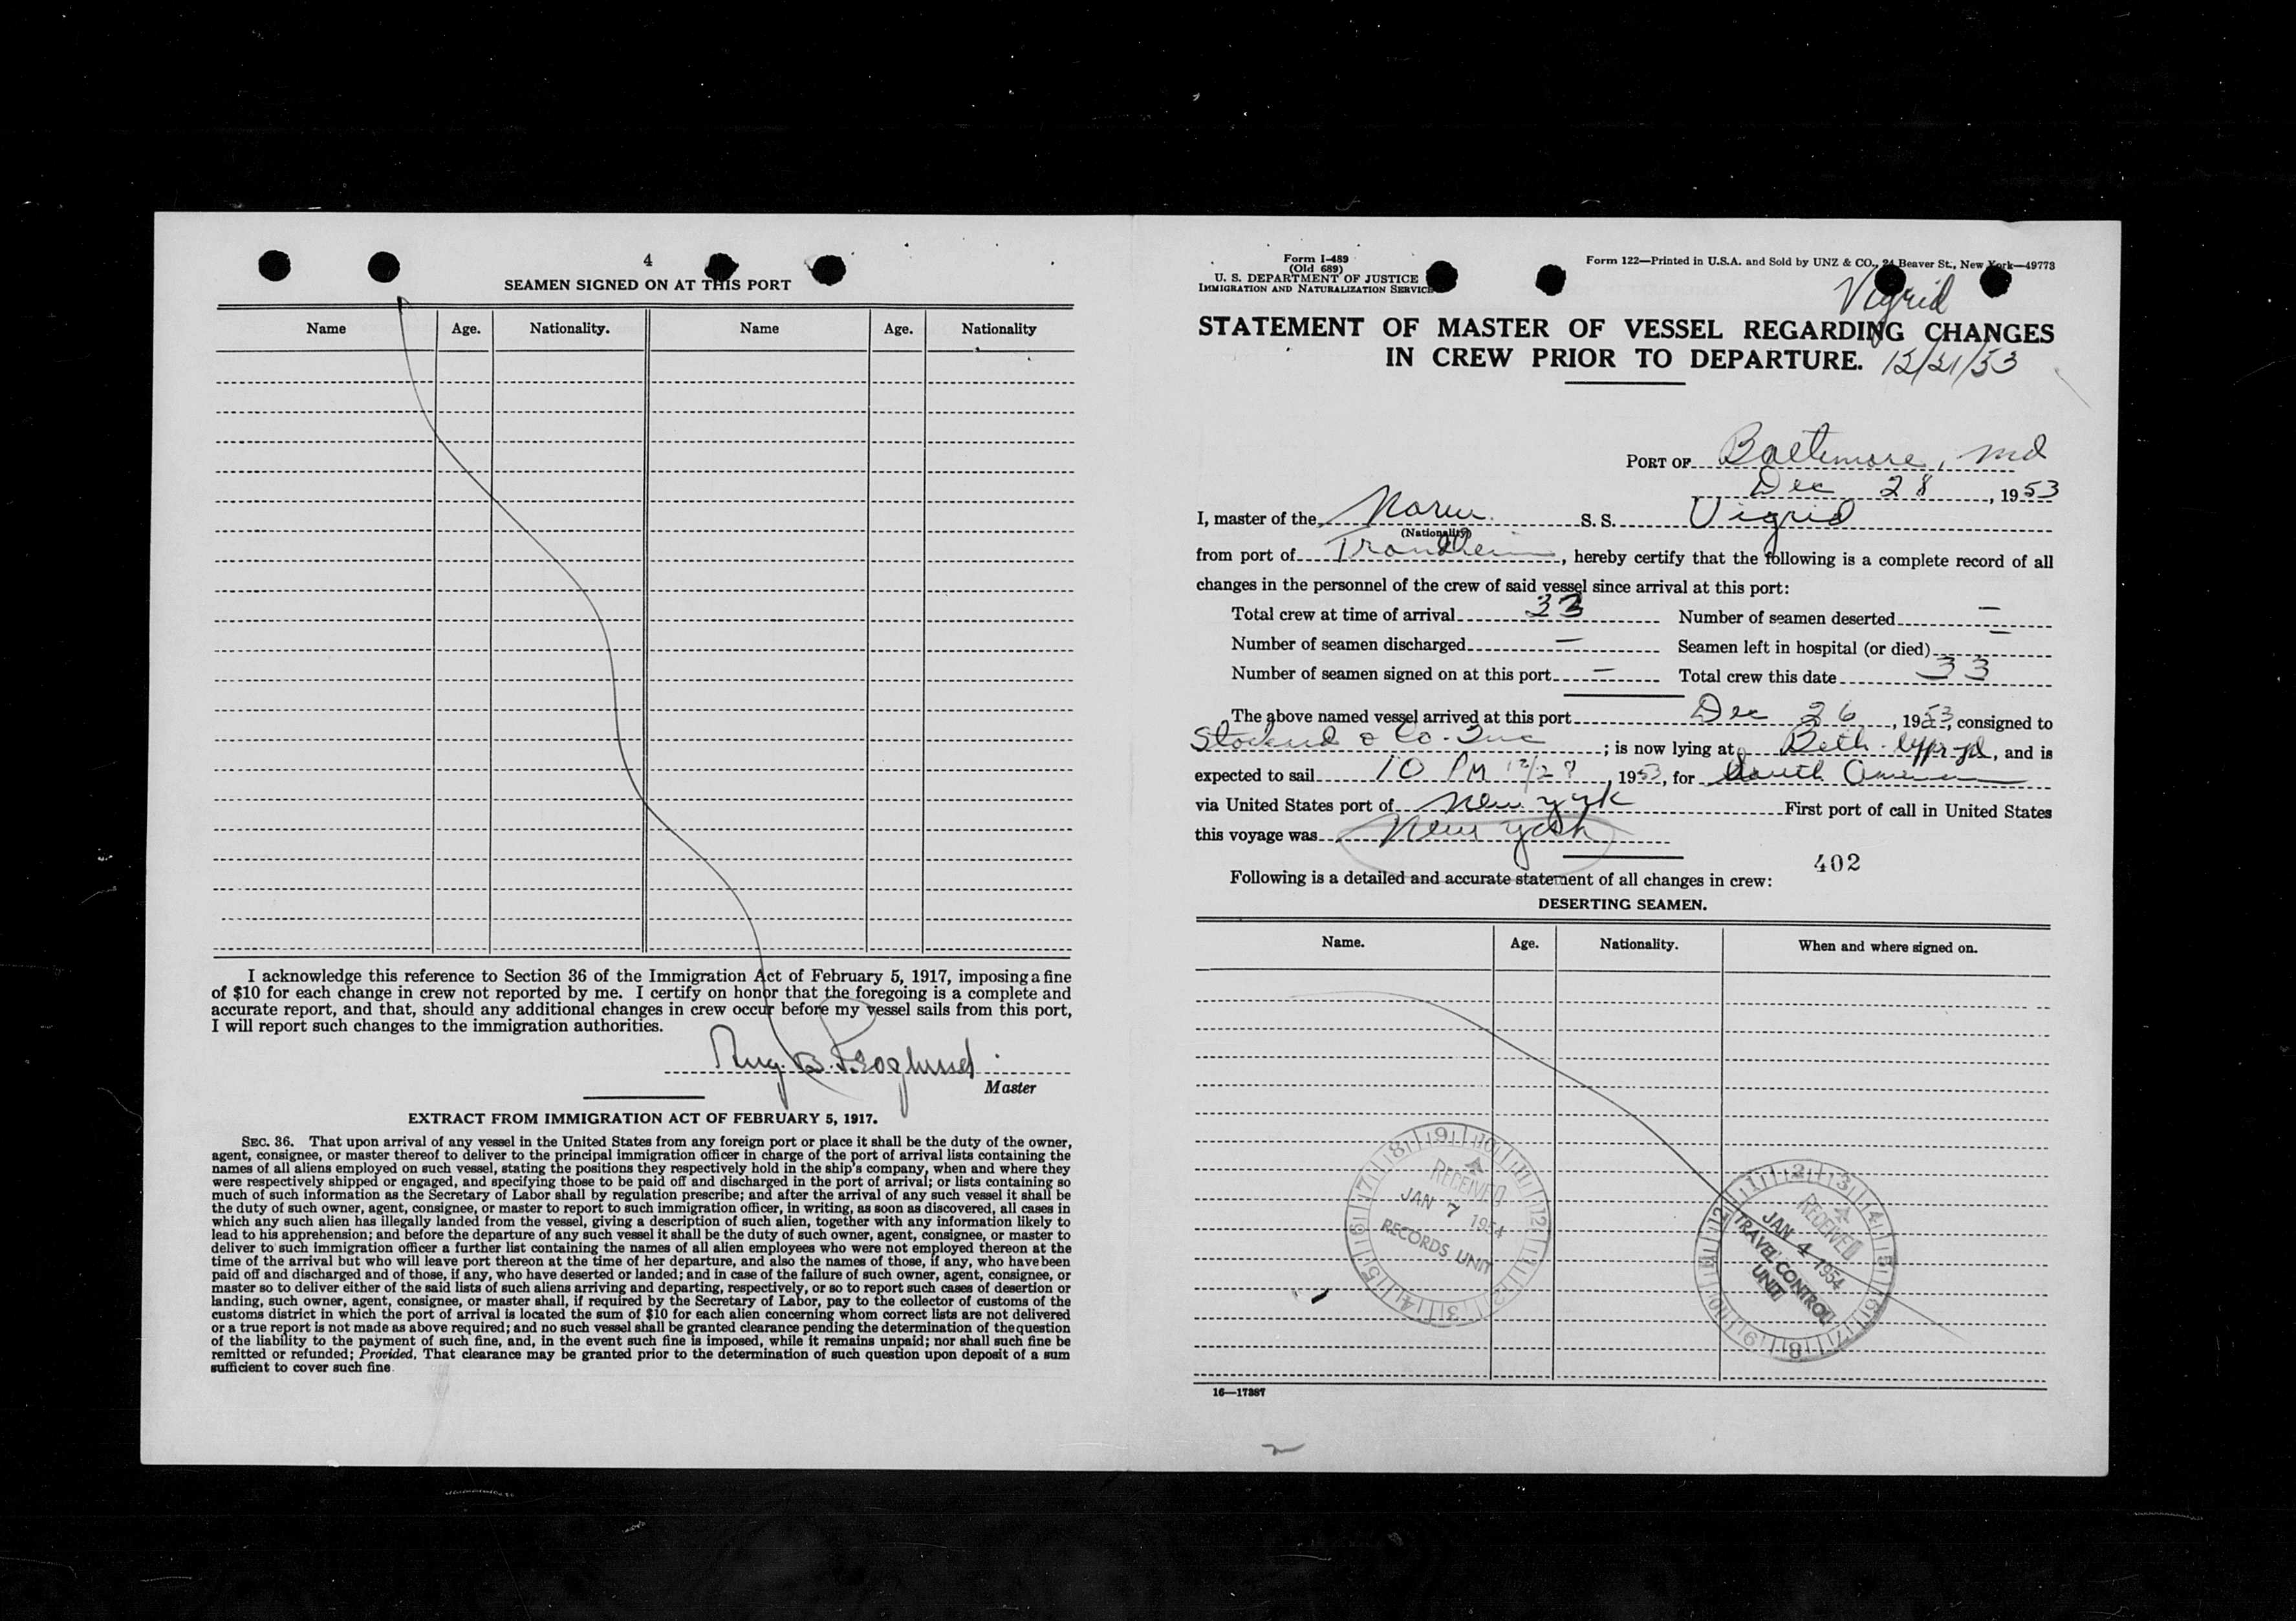 4
SEAMEN SIGNED ON AT THIS PORT
Name Age. Nationality. Name Age. Nationality
I acknowledge this reference to Section 36 of the Immigration Act of February 5, 1917, imposing a fine
of $10 for each change in crew not reported by me. I certify on honor that the foregoing is a complete and
accurate report, and that, should any additional changes in crew occur before my vessel sails from this port,
I will report such changes to the immigration authorities.
Master
EXTRACT FROM IMMIGRATION ACT OF FEBRUARY 5, 1917.
SEC. 36. That upon arrival of any vessel in the United States from any foreign port or place it shall be the duty of the owner,
agent, consignee, or master thereof to deliver to the principal immigration officer in charge of the port of arrival lists containing the
names of all aliens employed on such vessel, stating the positions they respectively hold in the ship's company, when and where they
were respectively shipped or engaged, and specifying those to be paid off and discharged in the port of arrival; or lists containing so
much of such information as the Secretary of Labor shall by regulation prescribe; and after the arrival of any such vessel it shall be
the duty of such owner, agent, consignee, or master to report to such immigration officer, in writing, as soon as discovered, all cases in
which any such alien has illegally landed from the vessel, giving a description of such alien, together with any information likely to
lead to his apprehension; and before the departure of any such vessel it shall be the duty of such owner, agent, consignee, or master to
deliver to such immigration officer a further list containing the names of all alien employees who were not employed thereon at the
time of the arrival but who will leave port thereon at the time of her departure, and also the names of those, if any, who have been
paid off and discharged and of those, if any, who have deserted or landed; and in case of the failure of such owner, agent, consignee, or
master so to deliver either of the said lists of such aliens arriving and departing, respectively, or so to report such cases of desertion or
landing, such owner, agent, consignee, or master shall, if required by the Secretary of Labor, pay to the collector of customs of the
customs district in which the port of arrival is located the sum of $10 for each alien concerning whom correct lists are not delivered
or a true report is not made as above required; and no such vessel shall be granted clearance pending the determination of the question
of the liability to the payment of such fine, and, in the event such fine is imposed, while it remains unpaid; nor shall such fine be
remitted or refunded; Provided, That clearance may be granted prior to the determination of such question upon deposit of a sum
sufficient to cover such fine.
Form I-489
(Old 689)
U. S. DEPARTMENT OF JUSTICE
IMMIGRATION AND NATURALIZATION SERVICE
Form 122—Printed in U.S.A. and Sold by UNZ & CO., 24 Beaver St., New York—49773
Vigrid
STATEMENT OF MASTER OF VESSEL REGARDING CHANGES
IN CREW PRIOR TO DEPARTURE. 12/21/53
PORT OF Baltimore, Md
Dec 28, 1953
I, master of the Norw. S. S. Vigrid
(Nationality)
from port of Trondheim, hereby certify that the following is a complete record of all
changes in the personnel of the crew of said vessel since arrival at this port:
Total crew at time of arrival 33 Number of seamen deserted —
Number of seamen discharged — Seamen left in hospital (or died) —
Number of seamen signed on at this port — Total crew this date 33
The above named vessel arrived at this port Dec 26, 1953, consigned to
Stockard & Co. Inc ; is now lying at Beth. , and is
expected to sail 10 PM 12/28, 1953, for South America
via United States port of New York First port of call in United States
this voyage was New York
402
Following is a detailed and accurate statement of all changes in crew:
DESERTING SEAMEN.
Name. Age. Nationality. When and where signed on.
RECEIVED
JAN 7 1954
RECORDS UNIT
RECEIVED
JAN 4 1954
TRAVEL CONTROL
UNIT
16—17387
2